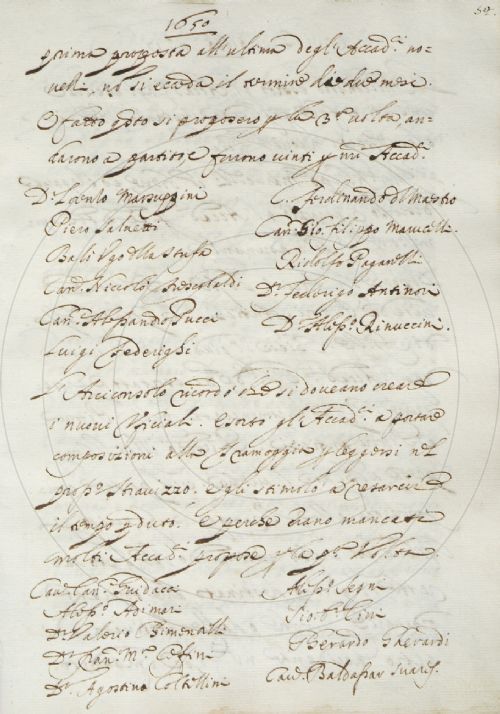 1650
59.
prima proposta all'ultima degl'Accad.i no-
velli, nō si ecceda il termine di due mesi.
E fatto q.to si proposero p la 3.a volta, an-
darono a partito e furono vinti p nri Accad.i
D. Lorenzo Marsuppini
Piero Salvetti
Balì Ugo della Stufa
Can.co Niccolò Frescobaldi
Can.co Alessandro Pucci
Luigi Federighi
C. Ferdinando del Maestro
Can.co Gio. Filippo Marucelli.
Ridolfo Paganelli
D. Federigo Antinori
D. Aless.o Rinuccini.
L'Arciconsolo ricordò che si doveano creare
i nuovi Ufiziali. Esortò gl'Accad.i a portare
composizioni alla Tramoggia p leggersi nel
pross.o Stravizzo. e gli stimolò a restarcire
il tempo pduto. E perche erano mancati
molti Accad.i propose p la p.a Volta
Cav. Can.co Guidacci
Aless.o Adimari
D. Valerio Chimentelli
D. Gian M.a Ceffini
D. Agostino Coltellini
Aless.o Segni
Iac.o Cini
Gherardo Gherardi
Cav. Baldassar Suares.